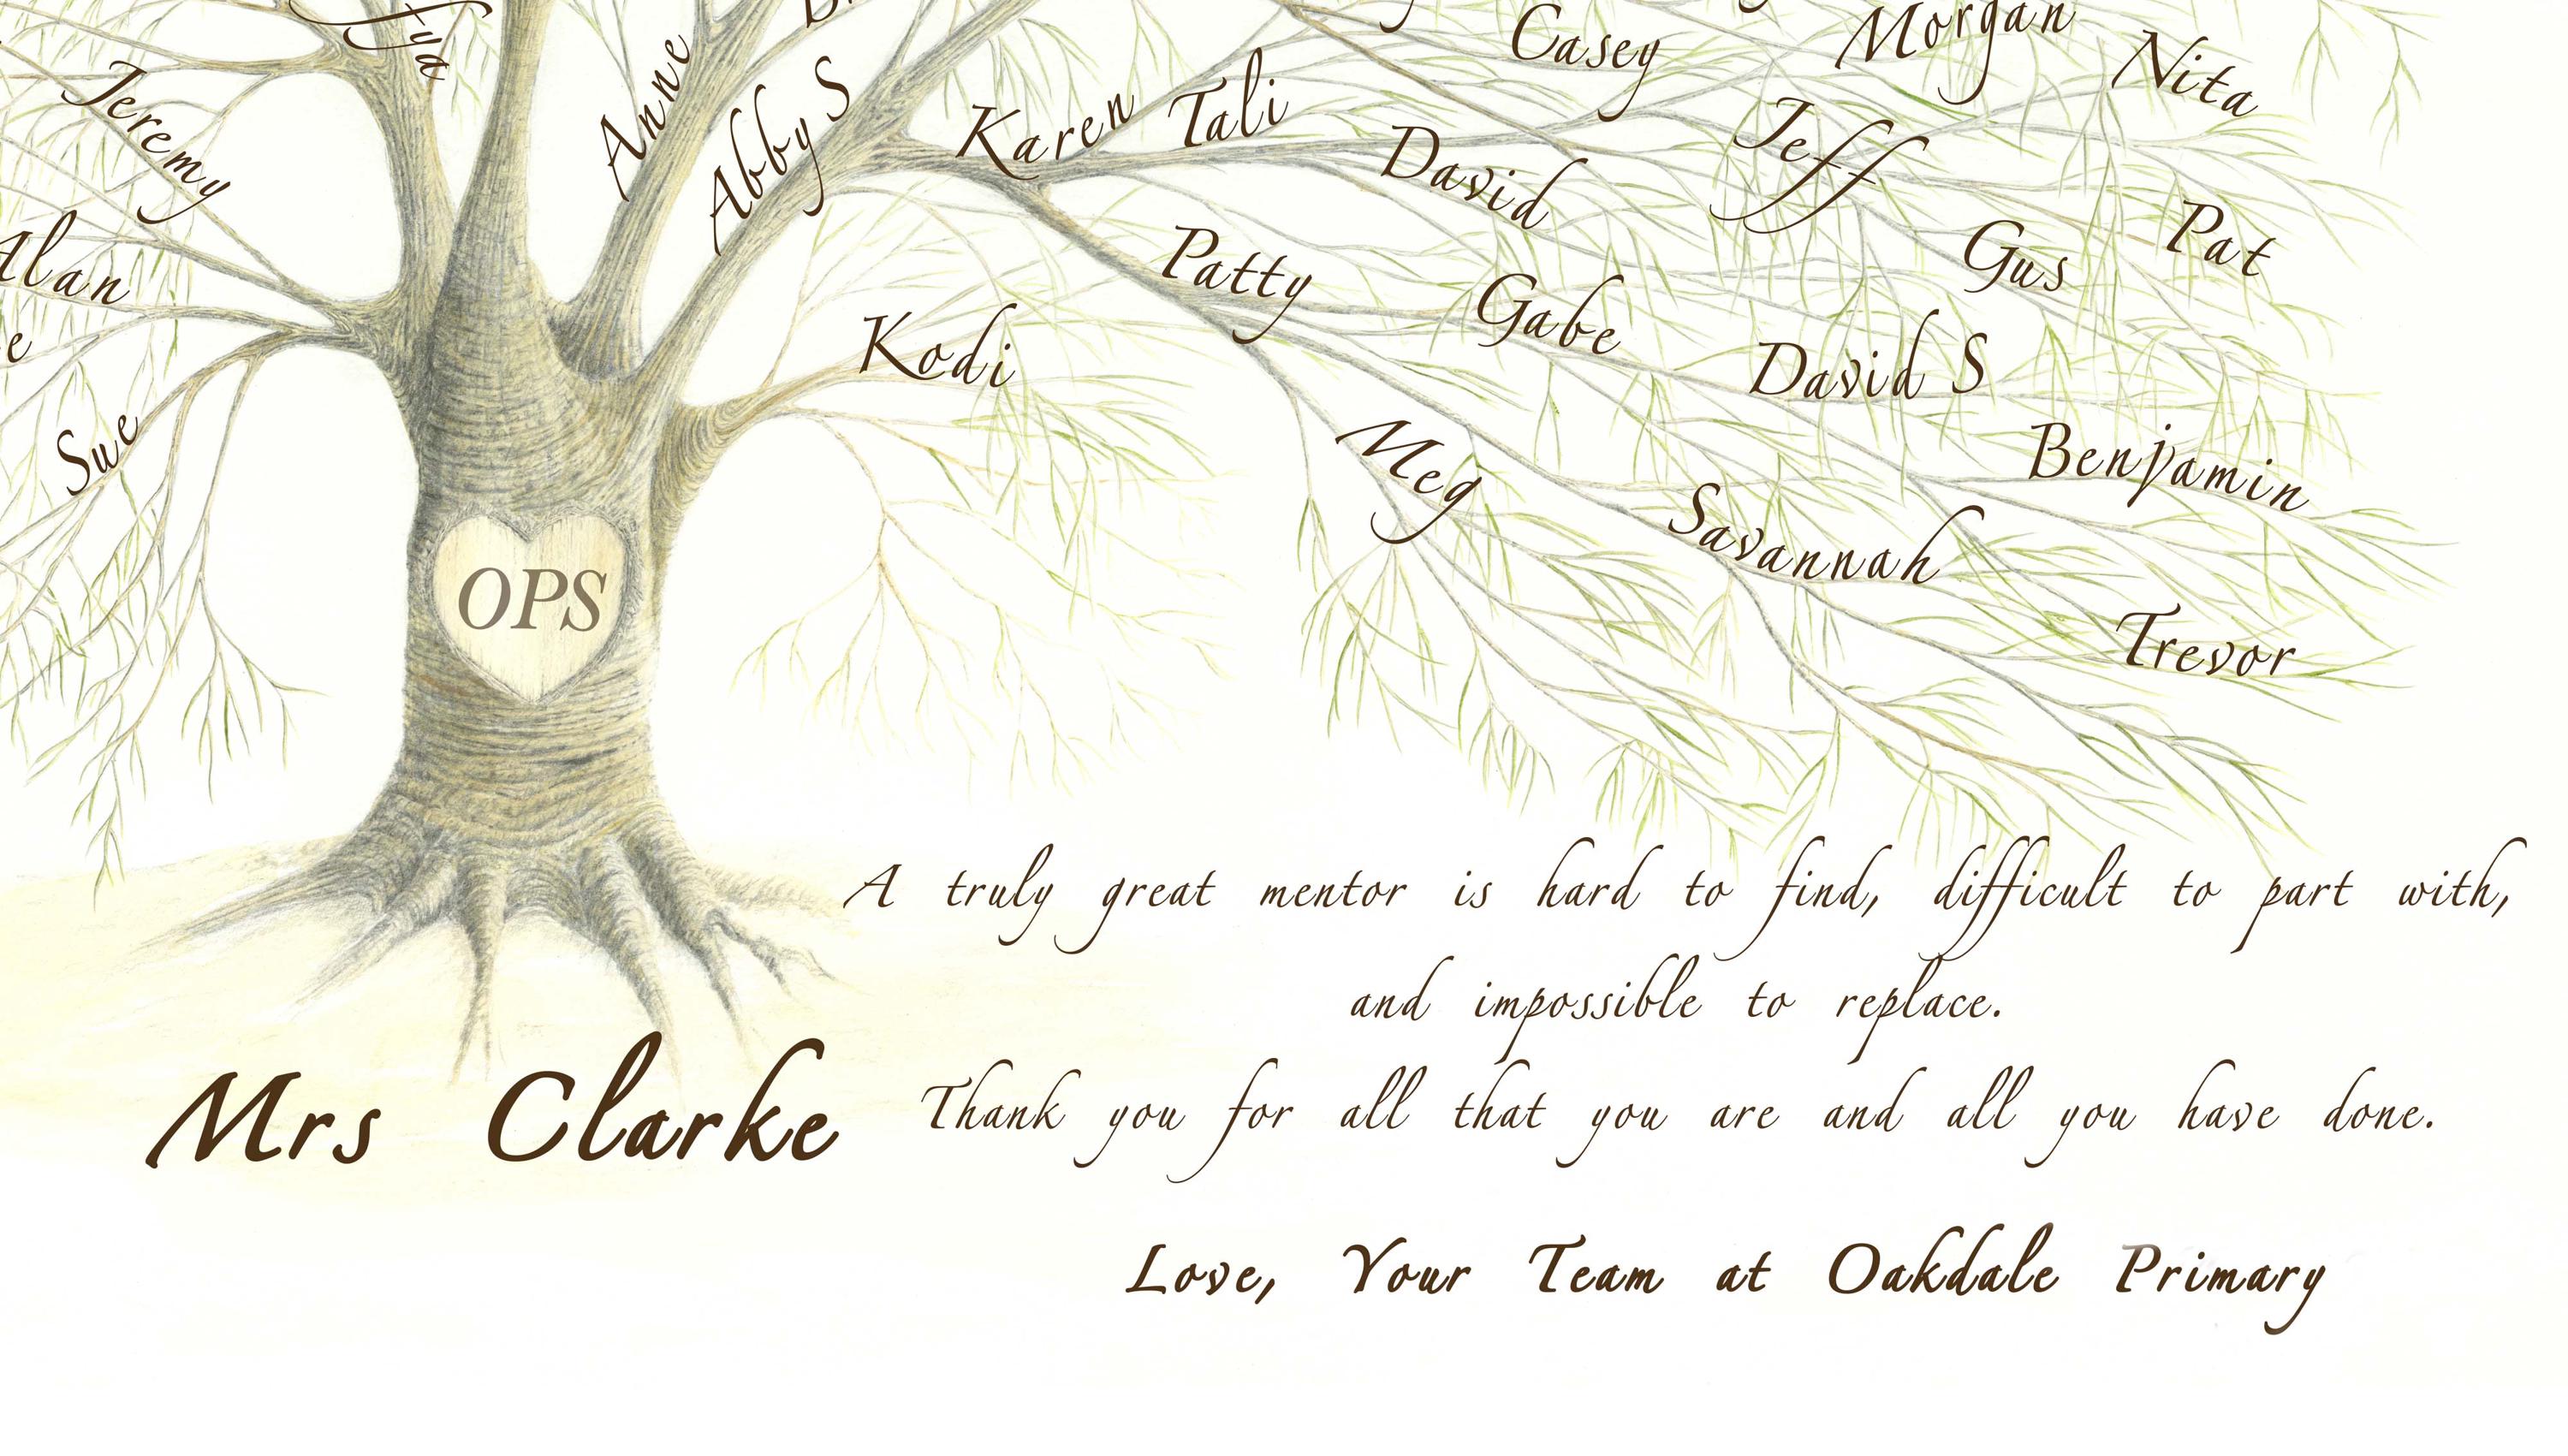 Casey
Morgan
Nita
Jeremy
Anne
Abby S
Karen
Tali
David
Jeff
Pat
Gus
Alan
Patty
Kodi
Gabe
David S
Sue
Meg
Benjamin
Savannah
OPS
Trevor
A truly great mentor is hard to find, difficult to part with,
and impossible to replace.
Mrs Clarke
Thank you for all that you are and all you have done.
Love, Your Team at Oakdale Primary